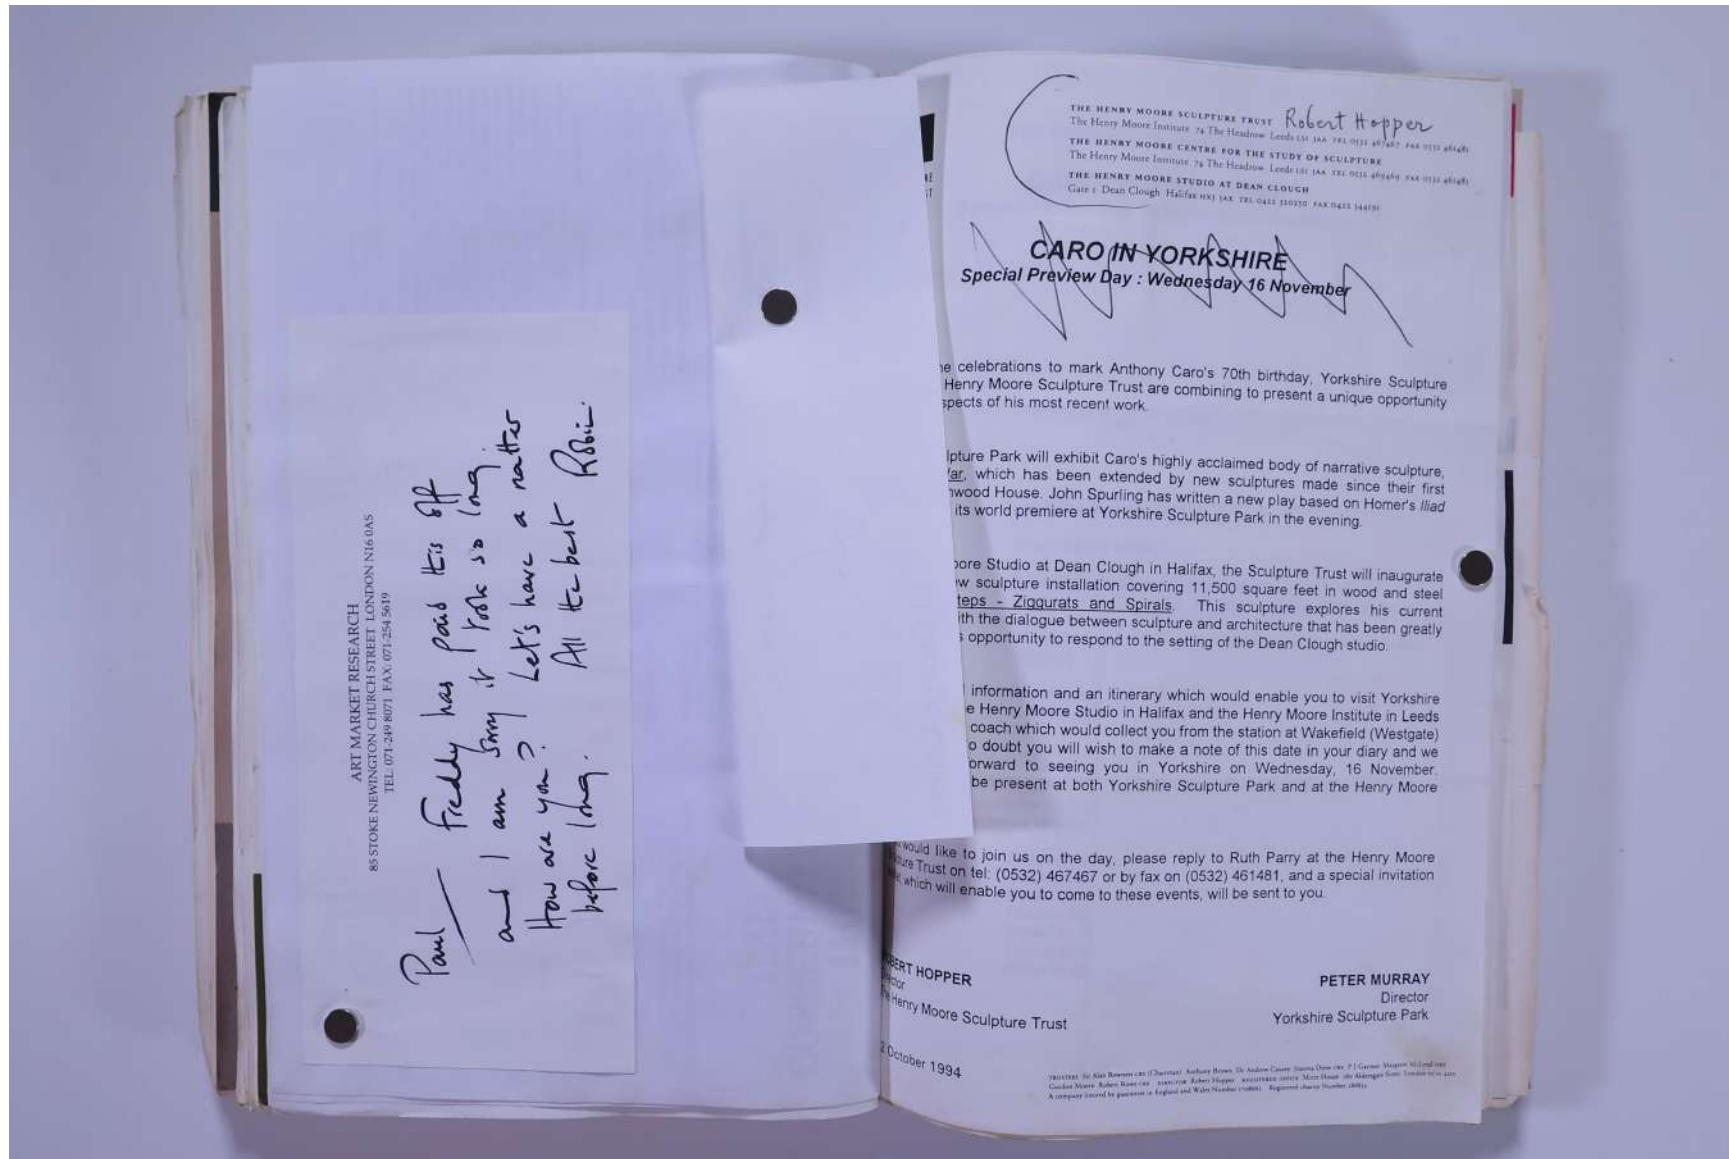 ART MARKET RESEARCH
85 STOKE NEWINGTON CHURCH STREET LONDON N16 0AS
TEL: 071-249 8071 FAX: 071-254 5619
Paul — Freddy has paid this off
and I am sorry it took so long.
How are you? Let's have a natter
before long. All the best Robin.
THE HENRY MOORE SCULPTURE TRUST Robert Hopper
The Henry Moore Institute 74 The Headrow Leeds LS1 3AA TEL 0532 467467 FAX 0532 461481
THE HENRY MOORE CENTRE FOR THE STUDY OF SCULPTURE
The Henry Moore Institute 74 The Headrow Leeds LS1 3AA TEL 0532 469469 FAX 0532 461481
THE HENRY MOORE STUDIO AT DEAN CLOUGH
Gate 1 Dean Clough Halifax HX3 5AX TEL 0422 320250 FAX 0422 344191
CARO IN YORKSHIRE
Special Preview Day : Wednesday 16 November
he celebrations to mark Anthony Caro's 70th birthday, Yorkshire Sculpture
Henry Moore Sculpture Trust are combining to present a unique opportunity
spects of his most recent work.
lpture Park will exhibit Caro's highly acclaimed body of narrative sculpture,
ar, which has been extended by new sculptures made since their first
nwood House. John Spurling has written a new play based on Homer's Iliad
its world premiere at Yorkshire Sculpture Park in the evening.
oore Studio at Dean Clough in Halifax, the Sculpture Trust will inaugurate
w sculpture installation covering 11,500 square feet in wood and steel
teps - Ziggurats and Spirals. This sculpture explores his current
ith the dialogue between sculpture and architecture that has been greatly
s opportunity to respond to the setting of the Dean Clough studio.
l information and an itinerary which would enable you to visit Yorkshire
e Henry Moore Studio in Halifax and the Henry Moore Institute in Leeds
coach which would collect you from the station at Wakefield (Westgate)
o doubt you will wish to make a note of this date in your diary and we
orward to seeing you in Yorkshire on Wednesday, 16 November.
be present at both Yorkshire Sculpture Park and at the Henry Moore
would like to join us on the day, please reply to Ruth Parry at the Henry Moore
ture Trust on tel: (0532) 467467 or by fax on (0532) 461481, and a special invitation
which will enable you to come to these events, will be sent to you.
BERT HOPPER
ector
he Henry Moore Sculpture Trust
PETER MURRAY
Director
Yorkshire Sculpture Park
2 October 1994